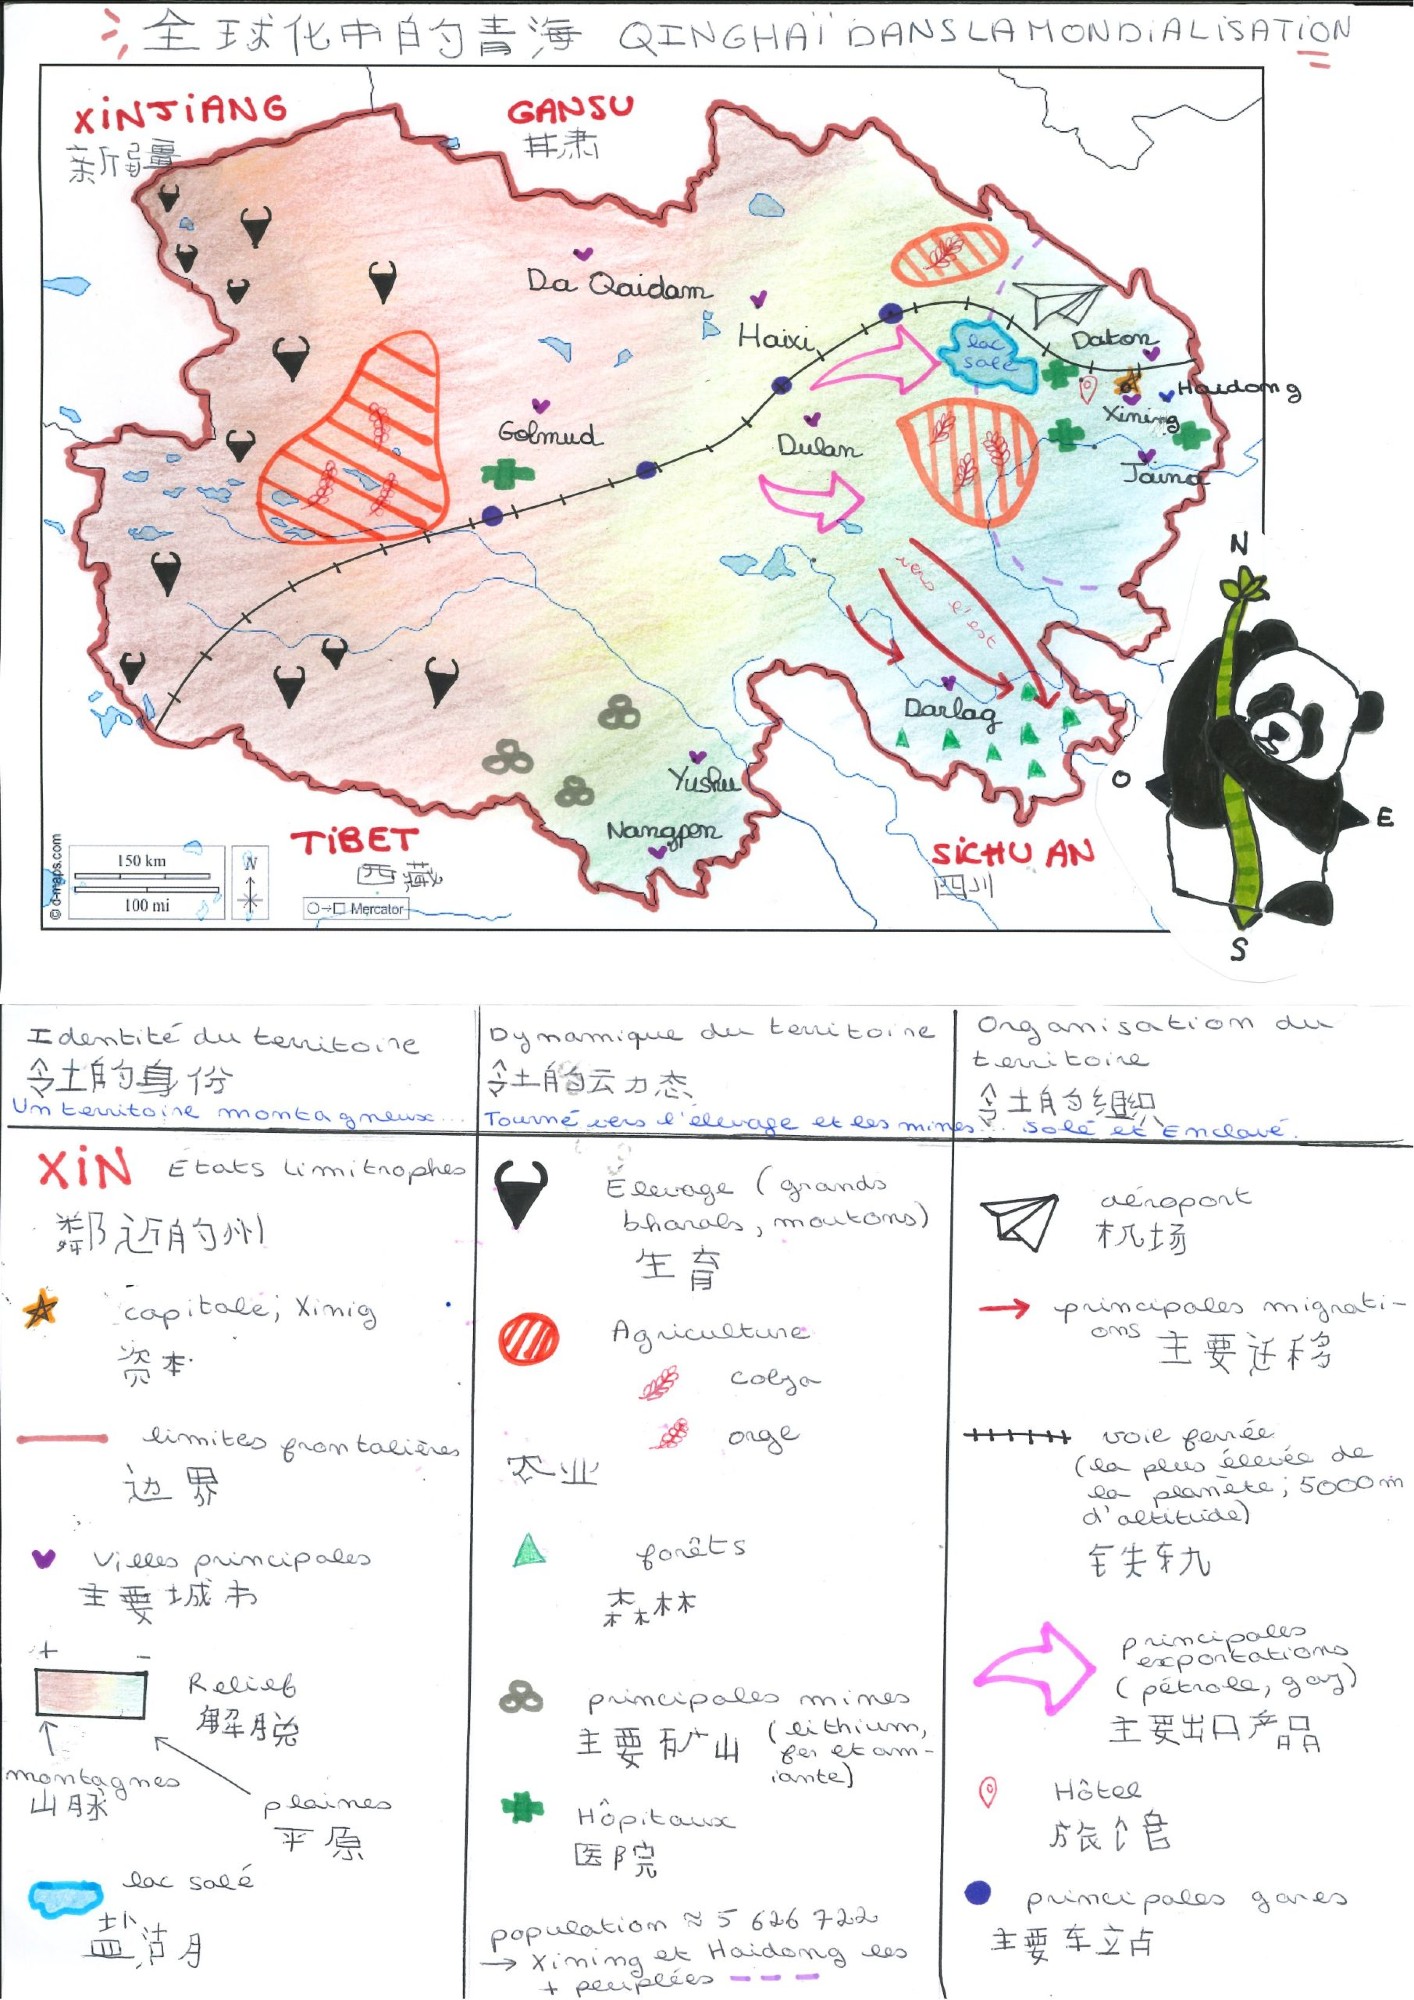 全球化中的青海 QINGHAÏ DANS LA MONDIALISATION
XINJIANG
新疆
GANSU
甘肃
Da Qaidam
Haixi
Golmud
Dulan
lac
salé
Daton
Haidong
Xining
Jaina
vers l'est
Darlag
Yushu
Nangpen
TIBET
西藏
SICHUAN
四川
N
O
E
S
© d-maps.com
150 km
100 mi
N
Mercator
Identité du territoire
令土的身份
Un territoire montagneux...
XIN États limitrophes
鄰近的州
capitale; Xinig
资本
limites frontalières
边界
Villes principales
主要城市
+ -
Relief
解脱
montagnes
山脉
plaines
平原
lac salé
盐沽月
Dynamique du territoire
令土的云力态
Tourné vers l'élevage et les mines...
Élevage (grands
bharals, moutons)
生育
Agriculture
colza
orge
农业
forêts
森林
principales mines
主要矿山 (lithium,
fer et am-
iante)
Hôpitaux
医院
population ≈ 5 626 722
→ Xining et Haidong les
+ peuplées
Organisation du
territoire
令土的组织
Salé et Enclavé.
aéroport
机场
principales migrati-
ons 主要迁移
voie ferrée
(la plus élevée de
la planète; 5000m
d'altitude)
principales
exportations
(pétrole, gaz)
主要出口产品
Hôtel
旅馆
principales gares
主要车立占